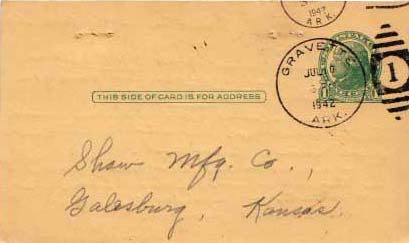 1942
ARK.
GRAVETTE
JUL
1942
ARK.
1
THIS SIDE OF CARD IS FOR ADDRESS
Shaw Mfg. Co.,
Galesburg, Kansas.